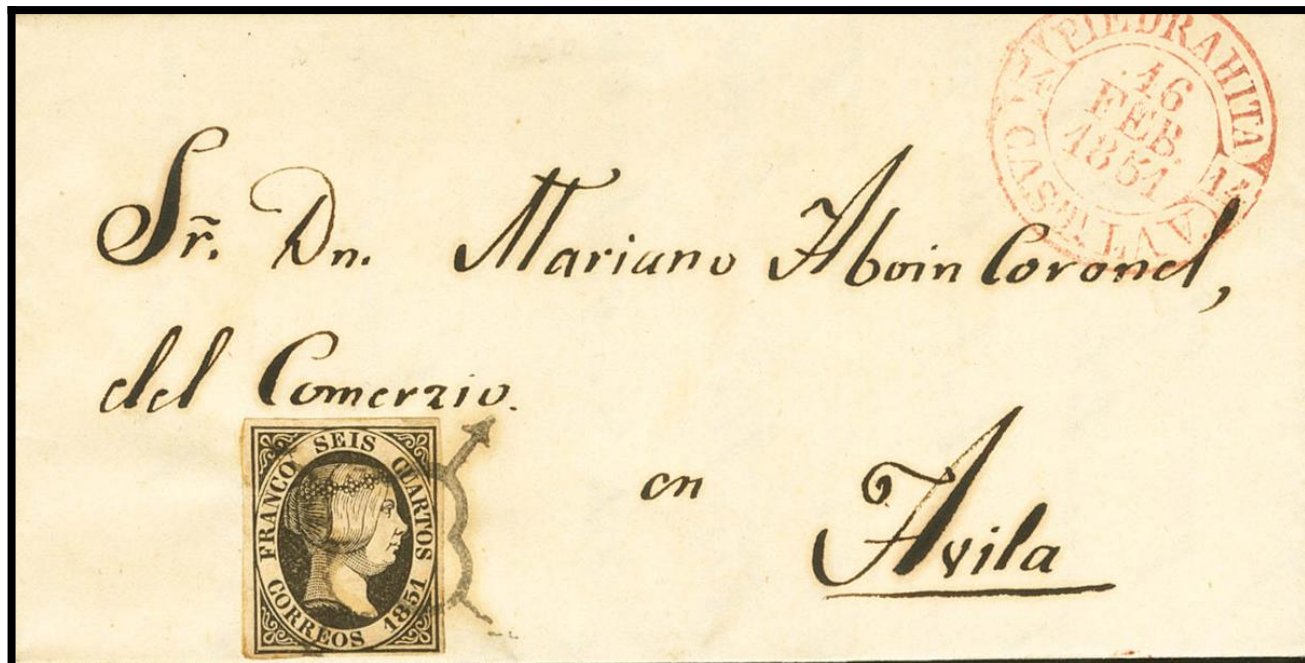 PIEDRAHITA
16
FEB
1851
Sr. Dn. Mariano Aboin Coronel,
del Comerzio.
FRANCO SEIS CUARTOS
CORREOS 1851
en Avila